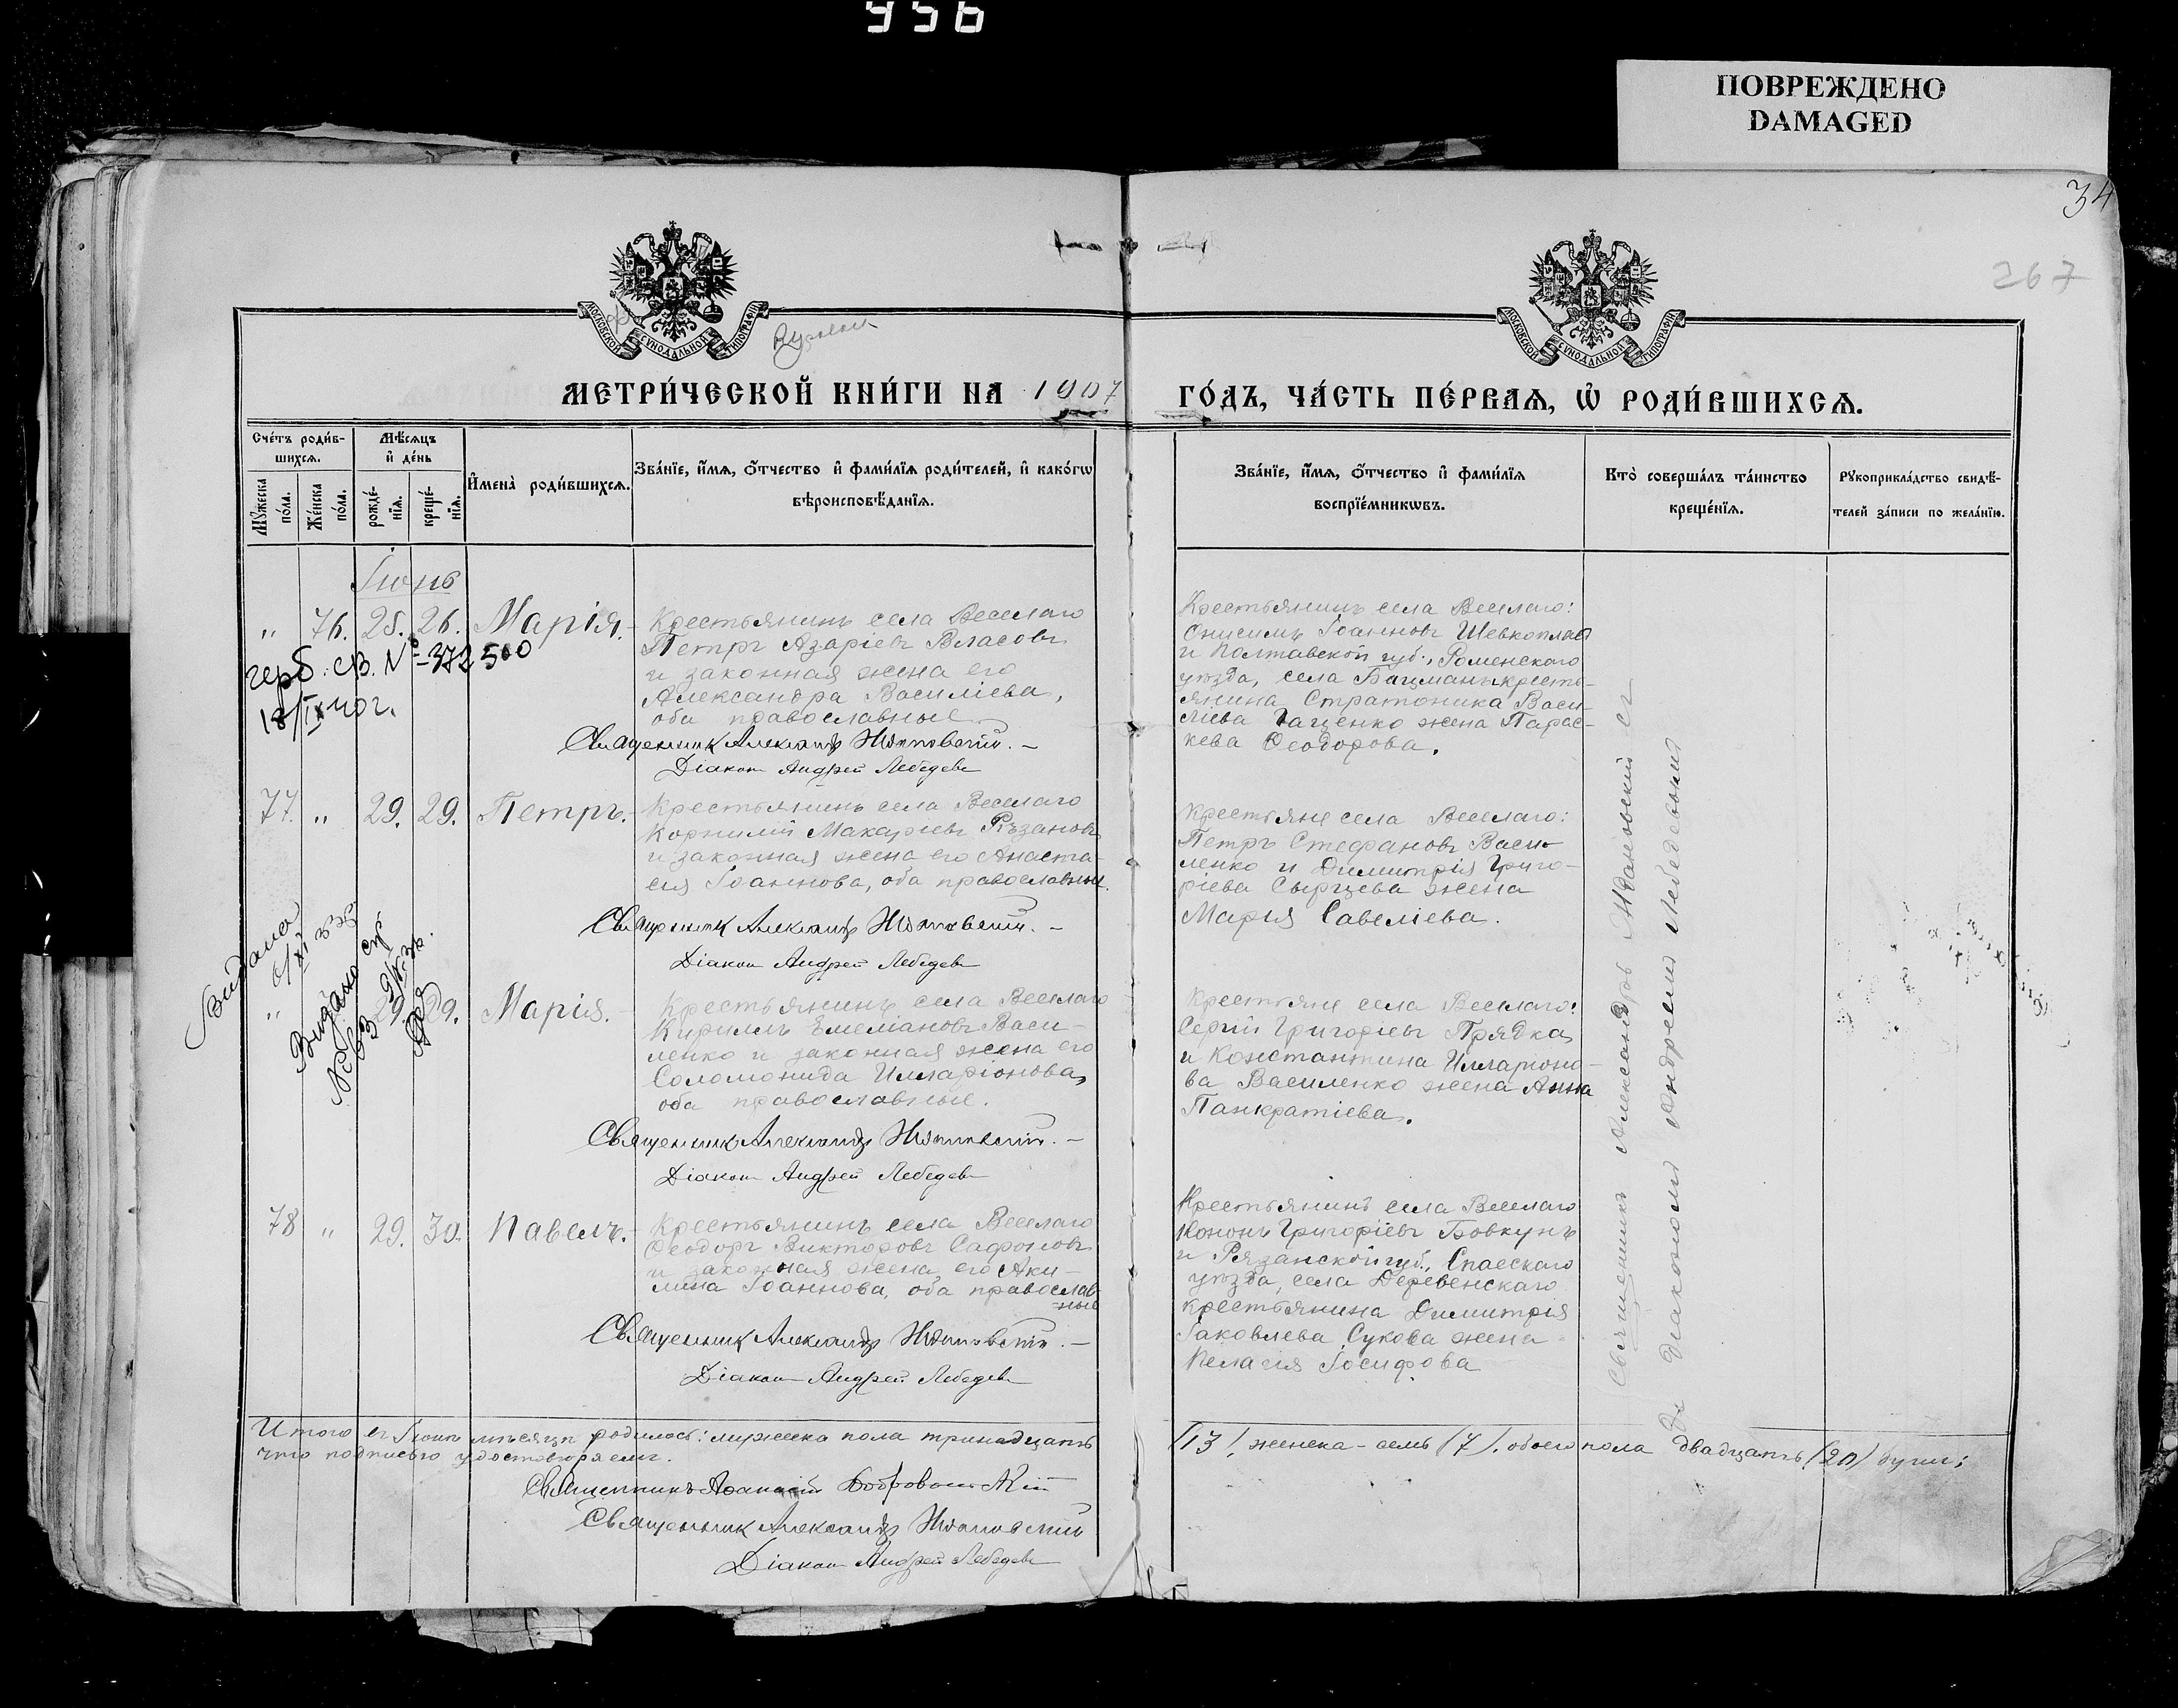 956
ПОВРЕЖДЕНО
DAMAGED
34
267
МОСКОВСКОЙ СѴНОДАЛЬНОЙ ТИПОГРАФІИ
МОСКОВСКОЙ СѴНОДАЛЬНОЙ ТИПОГРАФІИ
МЕТРИ́ЧЕСКОЙ КНИ́ГИ НА 1907
ГО́ДЪ, ЧА́СТЬ ПЕ́РВАѦ, Ѡ҆ РОДИ́ВШИХСѦ.
Сче́тъ роди́в-
шихсѧ.
Мѣ́сѧцъ
и҆ де́нь
Мꙋ́жеска
по́ла.
Же́нска
по́ла.
рожде́-
нїѧ.
креще́-
нїѧ.
И҆мена̀ роди́вшихсѧ.
Зва́нїе, и҆́мѧ, ѻ҆́тчество и҆ фами́лїѧ роди́телей, и҆ како́гѡ
вѣроисповѣ́данїѧ.
Зва́нїе, и҆́мѧ, ѻ҆́тчество и҆ фами́лїѧ
воспрїе́мникѡвъ.
Кто̀ соверша́лъ та́инство
креще́нїѧ.
Рꙋкоприкла́дство свидѣ́-
телей за́писи по жела́нїю.
Іюнь
" 76. 25. 26. Марія.
герб. св. № 372500
18/IX 40 г.
Крестьянинъ села Веселаго
Петръ Азаріевъ Власовъ
и законная жена его
Александра Василіева,
оба православные
Священникъ Александръ Ждановскій.
Діаконъ Андрей Лебедевъ
Крестьянинъ села Веселаго:
Онисимъ Іоанновъ Шевкопляс
и Полтавской губ., Роменскаго
уѣзда, села Бацманы кресть-
янина Стратоника Васи-
ліева Гаценко жена Парас-
кева Ѳеодорова.
77. " 29. 29. Петръ.
Крестьянинъ села Веселаго
Корнилій Макаріевъ Рѣзановъ
и законная жена его Анаста-
сія Іоаннова, оба православные.
Священникъ Александръ Ждановскій.
Діаконъ Андрей Лебедевъ
Крестьяне села Веселаго:
Петръ Стефановъ Васи-
ленко и Димитрія Григо-
ріева Сырцева жена
Марія Савеліева.
Выдана
Видано
" 29. 29. Марія.
Крестьянинъ села Веселаго
Кириллъ Емеліановъ Васи-
ленко и законная жена его
Соломонида Илларіонова,
оба православные.
Священникъ Александръ Ждановскій.
Діаконъ Андрей Лебедевъ
Крестьяне села Веселаго:
Сергій Григоріевъ Прядка
и Константина Илларіоно-
ва Василенко жена Анна
Панкратіева.
78 " 29. 30. Павелъ.
Крестьянинъ села Веселаго
Ѳеодоръ Викторовъ Сафоновъ
и законная жена его Аки-
лина Іоаннова, оба православ-
ные
Священникъ Александръ Ждановскій.
Діаконъ Андрей Лебедевъ
Крестьянинъ села Веселаго
Кононъ Григоріевъ Бовкунъ
и Рязанской губ., Спасскаго
уѣзда, села Деревенскаго
крестьянина Димитрія
Іаковлева Сукова жена
Пелагія Іосифова
Священникъ Александръ Ждановскій съ
Діакономъ Андреемъ Лебедевымъ
Итого въ Іюнѣ мѣсяцѣ родилось: мужеска пола тринадцать
/13/, женска - семь /7/. обоего пола двадцать /20/ душъ;
что подписью удостовѣряемъ.
Священникъ Аѳанасій
Священникъ Александръ Ждановскій
Діаконъ Андрей Лебедевъ